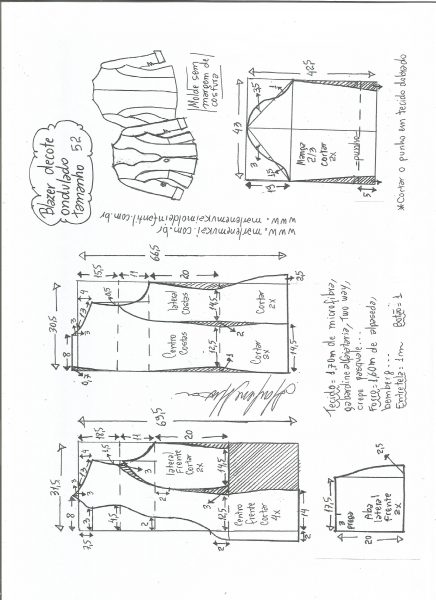 Blazer decote
ondulado
tamanho 52
Molde sem
margem de
costura
www.marlenemukai.com.br
www.marlenemukaimoldeinfantil.com.br
42,5
43
3,5
1
3
1,5
19
Manga
2/3
cortar
2x
punho
5
*Cortar o punho em tecido dobrado
66,5
15,5
11
20
2,5
30,5
4
3
8
0,7
0,5
14,5
12,5
2
1
14,5
lateral
costas
Cortar
2x
Centro
Costas
Cortar
2x
69,5
18,5
11
20
31,5
4
13
3
8
3
7,5
4,5
2
3
2
14,5
3
12,5
2
14
lateral
Frente
Cortar
2x
Centro
frente
Cortar
4x
Tecido= 1,70m de microfibra,
gabardine, alfaiataria, two way,
crepe pasquale...
Forro= 1,60m de
bemberg...
Entretela= 1m Botão= 1
17,5
2,5
3
prega
Aba
lateral
frente
2x
20